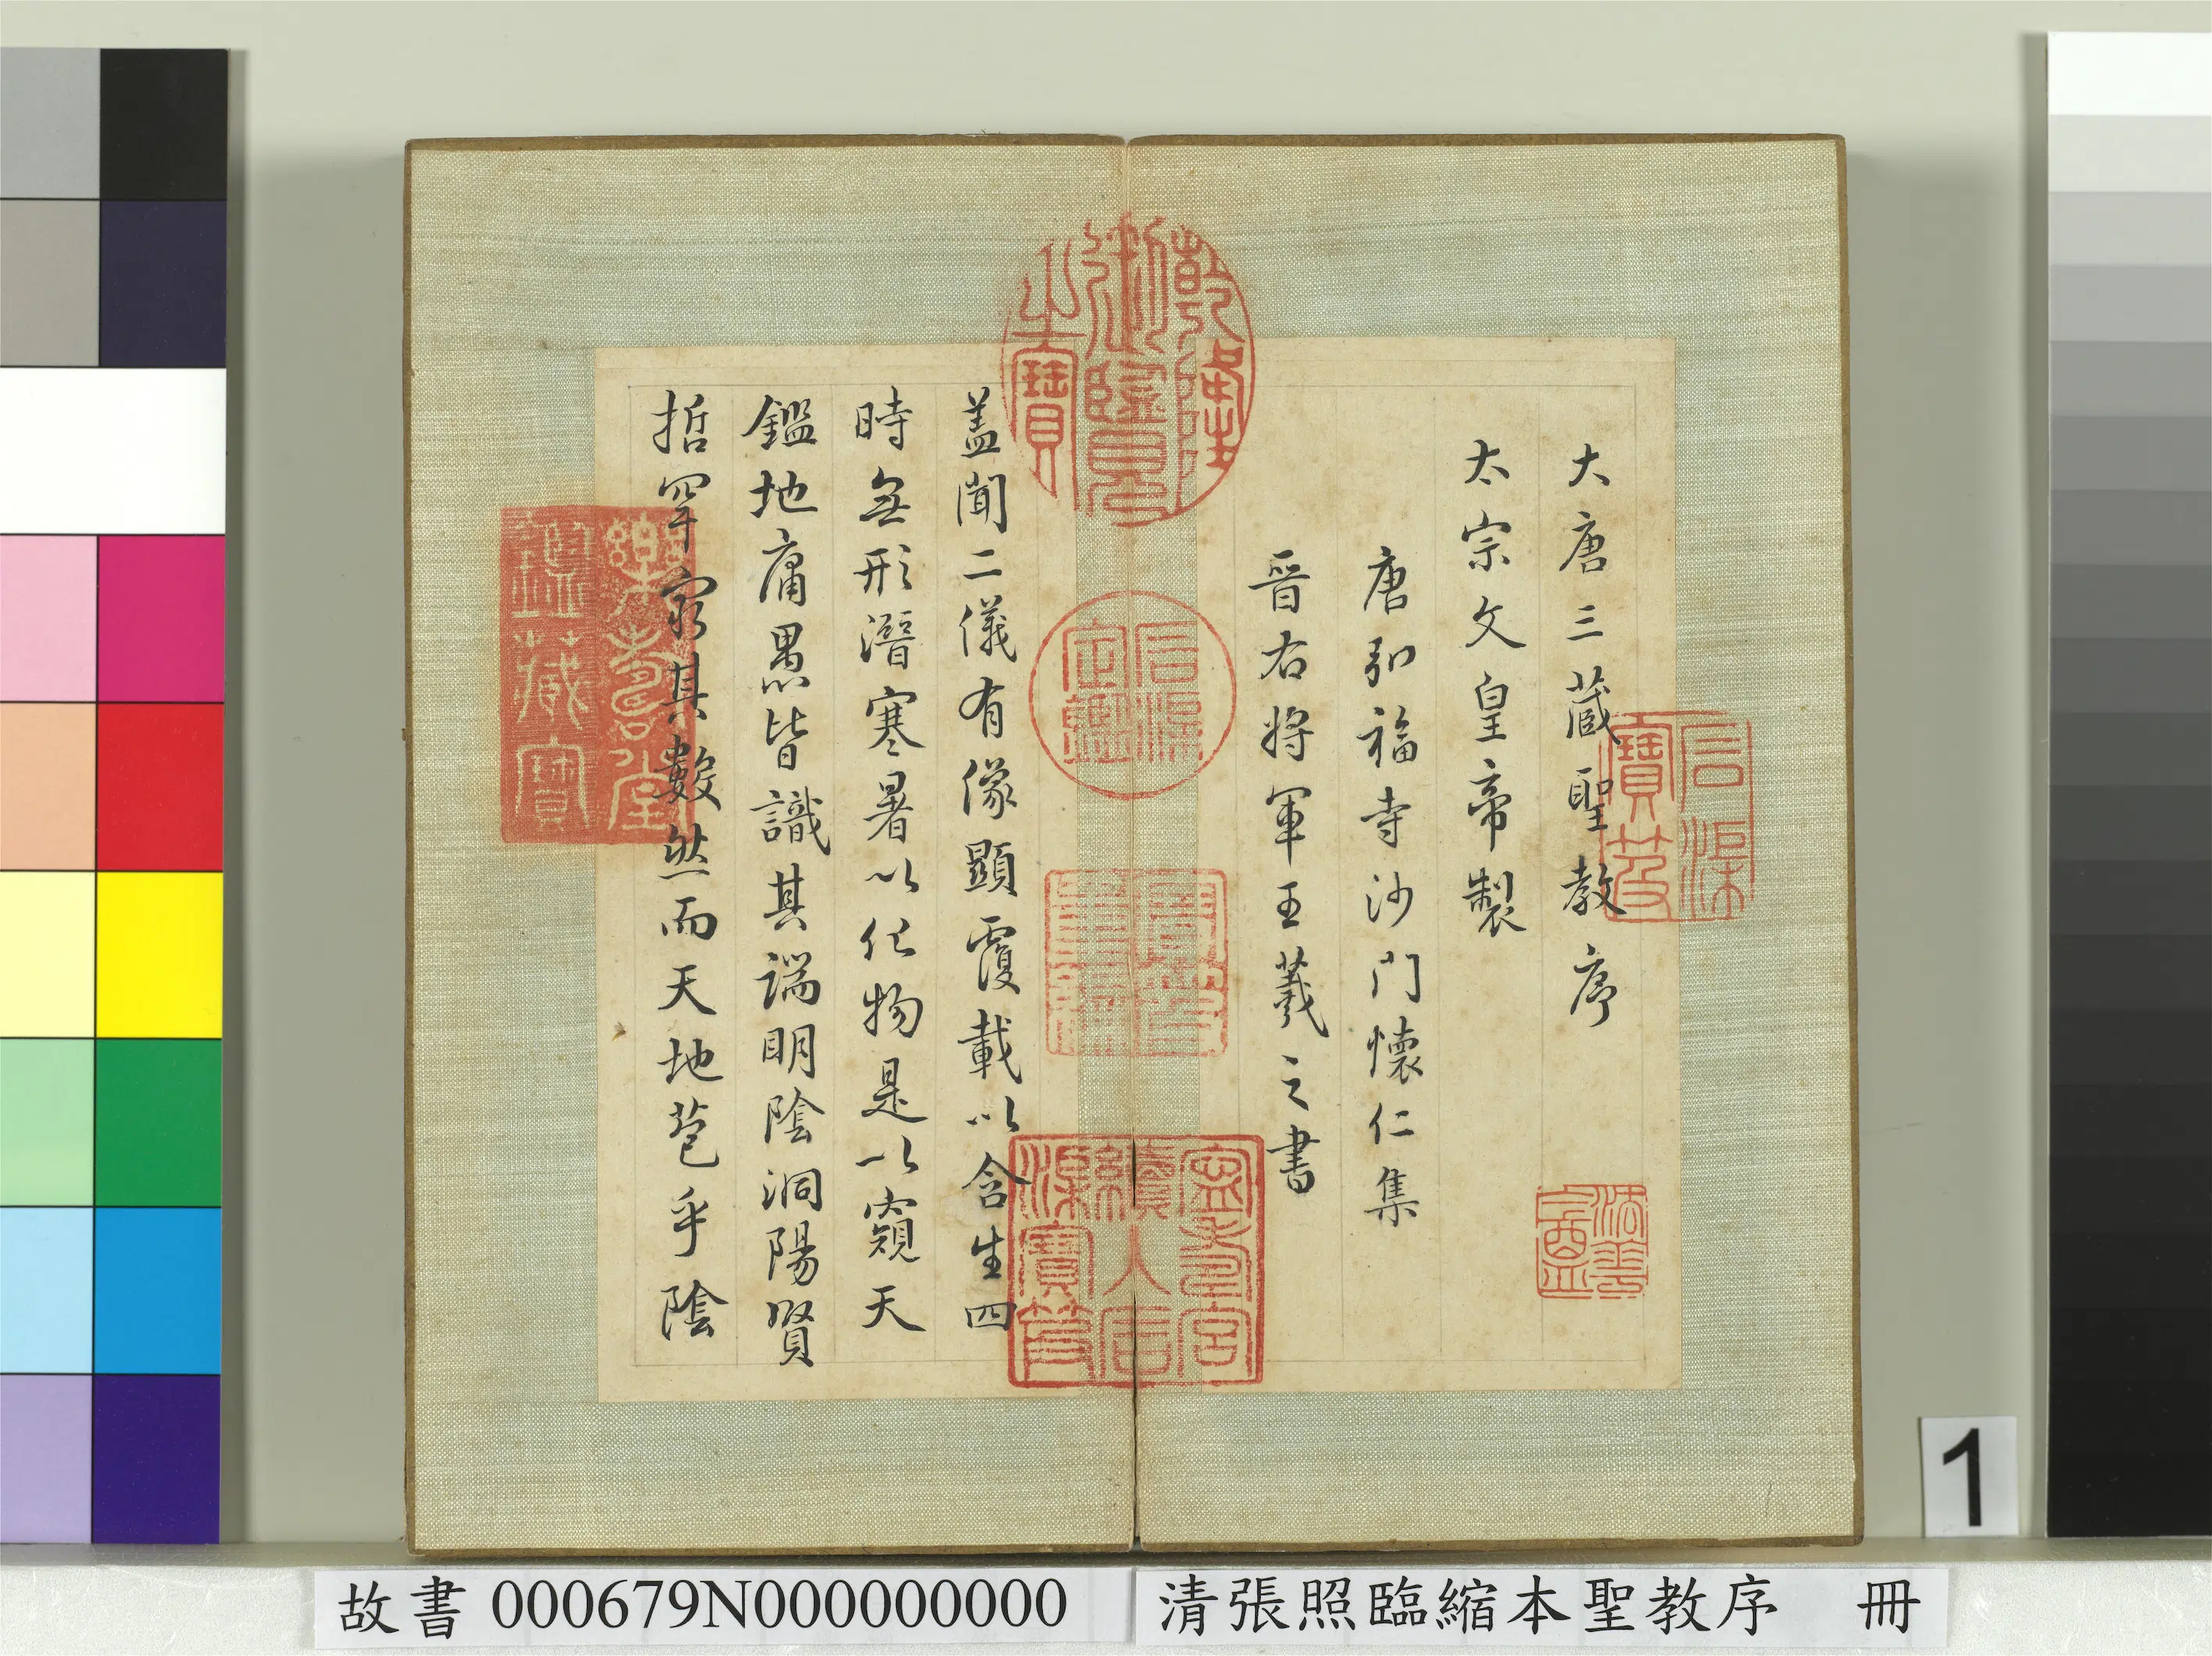 大唐三蔵聖教序
太宗文皇帝製
唐弘福寺沙門懷仁集
晉右将軍王羲之書
盖聞二儀有像顯覆載以含生四
時無形潛寒暑以化物是以窺天
鑑地庸愚皆識其端明陰洞陽賢
哲罕窮其數然而天地苞乎陰
乾隆御覽之寶
石渠寶笈
石渠定鑑
寶笈重編
寧壽宮續入石渠寶笈
樂壽堂鑑藏寶
故書 000679N000000000
清張照臨縮本聖教序 冊
1